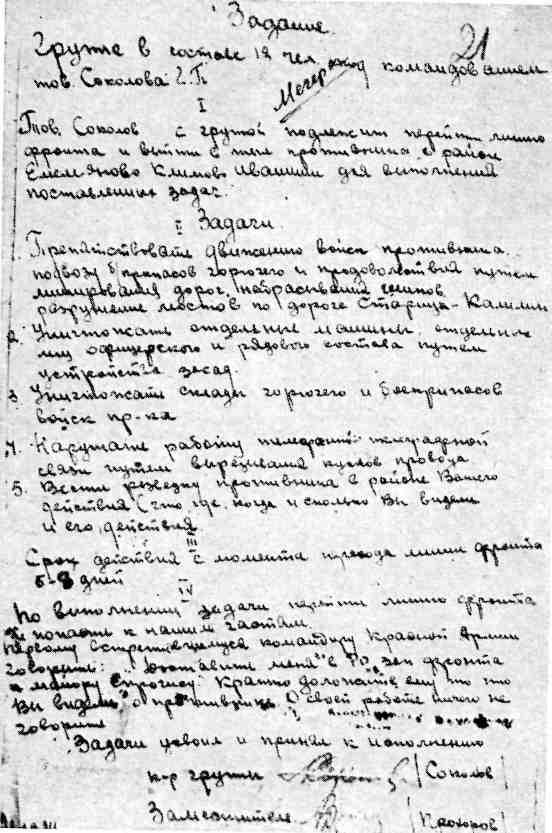 Задание
21
Группе в составе 12 чел. под командованием
тов. Соколова Г. П
I
Тов. Соколов с группой подлежит перейти линию
фронта и выйти в тыл противника в район
Емельяново Климово Ивашики для выполнения
поставленных задач.
II Задачи.
Препятствовать движению войск противника
подвозу б/припасов горючего и продовольствия путем
минирования дорог, набрасывания шипов
разрушение мостов по дороге Старица-Калинин
2. Уничтожать отдельные машины, отдельных
лиц офицерского и рядового состава путем
устройства засад.
3 Уничтожать склады горючего и боеприпасов
войск пр-ка
4. Нарушать работу телефонно-телеграфной
связи путем вырезывания кусков провода
5. Вести разведку противника в районе Вашего
действия (что, где, когда и сколько Вы видели
и его действия
III
Срок действия с момента перехода линии фронта
5-8 дней
IV
По выполнении задачи перейти линию фронта
и попасть к нашим частям.
Первому встретившемуся командиру Красной Армии
говорите: "Доставьте меня" в РО фронта
к майору Строгису" Кратко доложите ему то что
Вы видели о противнике. О своей работе ничего не
говорите
Задачи усвоил и принял к исполнению
к-р группы (Соколов)
Заместитель (Прохоров)